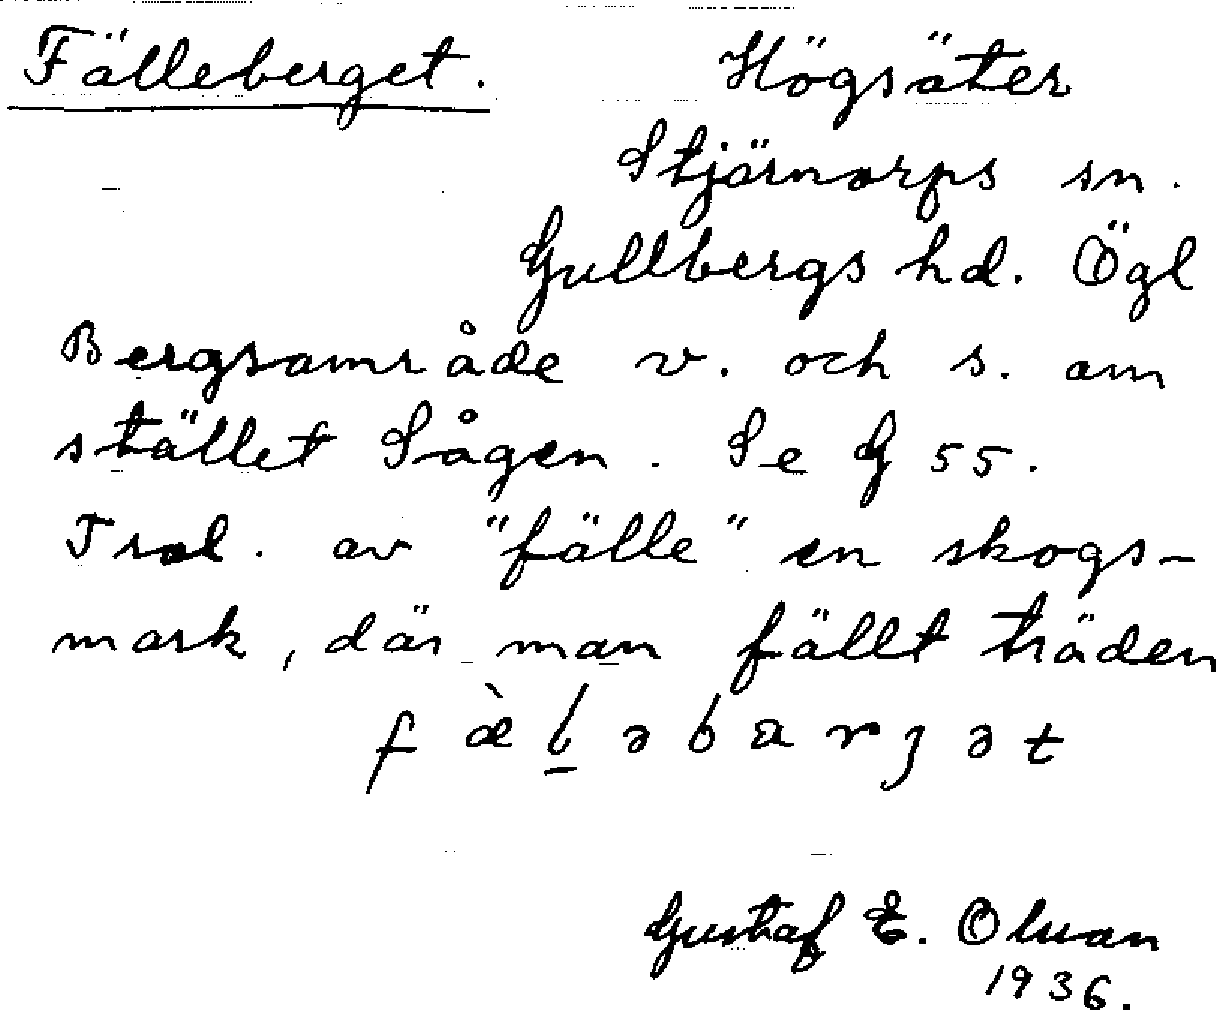 Fälleberget. Högsäter
Stjärnorps sn.
Gullbergs hd. Ögl
Bergsområde v. och s. om
stället Sågen. Se G 55.
Trol. av "fälle" en skogs-
mark, där man fällt träden
Gustaf E. Olson
1936.